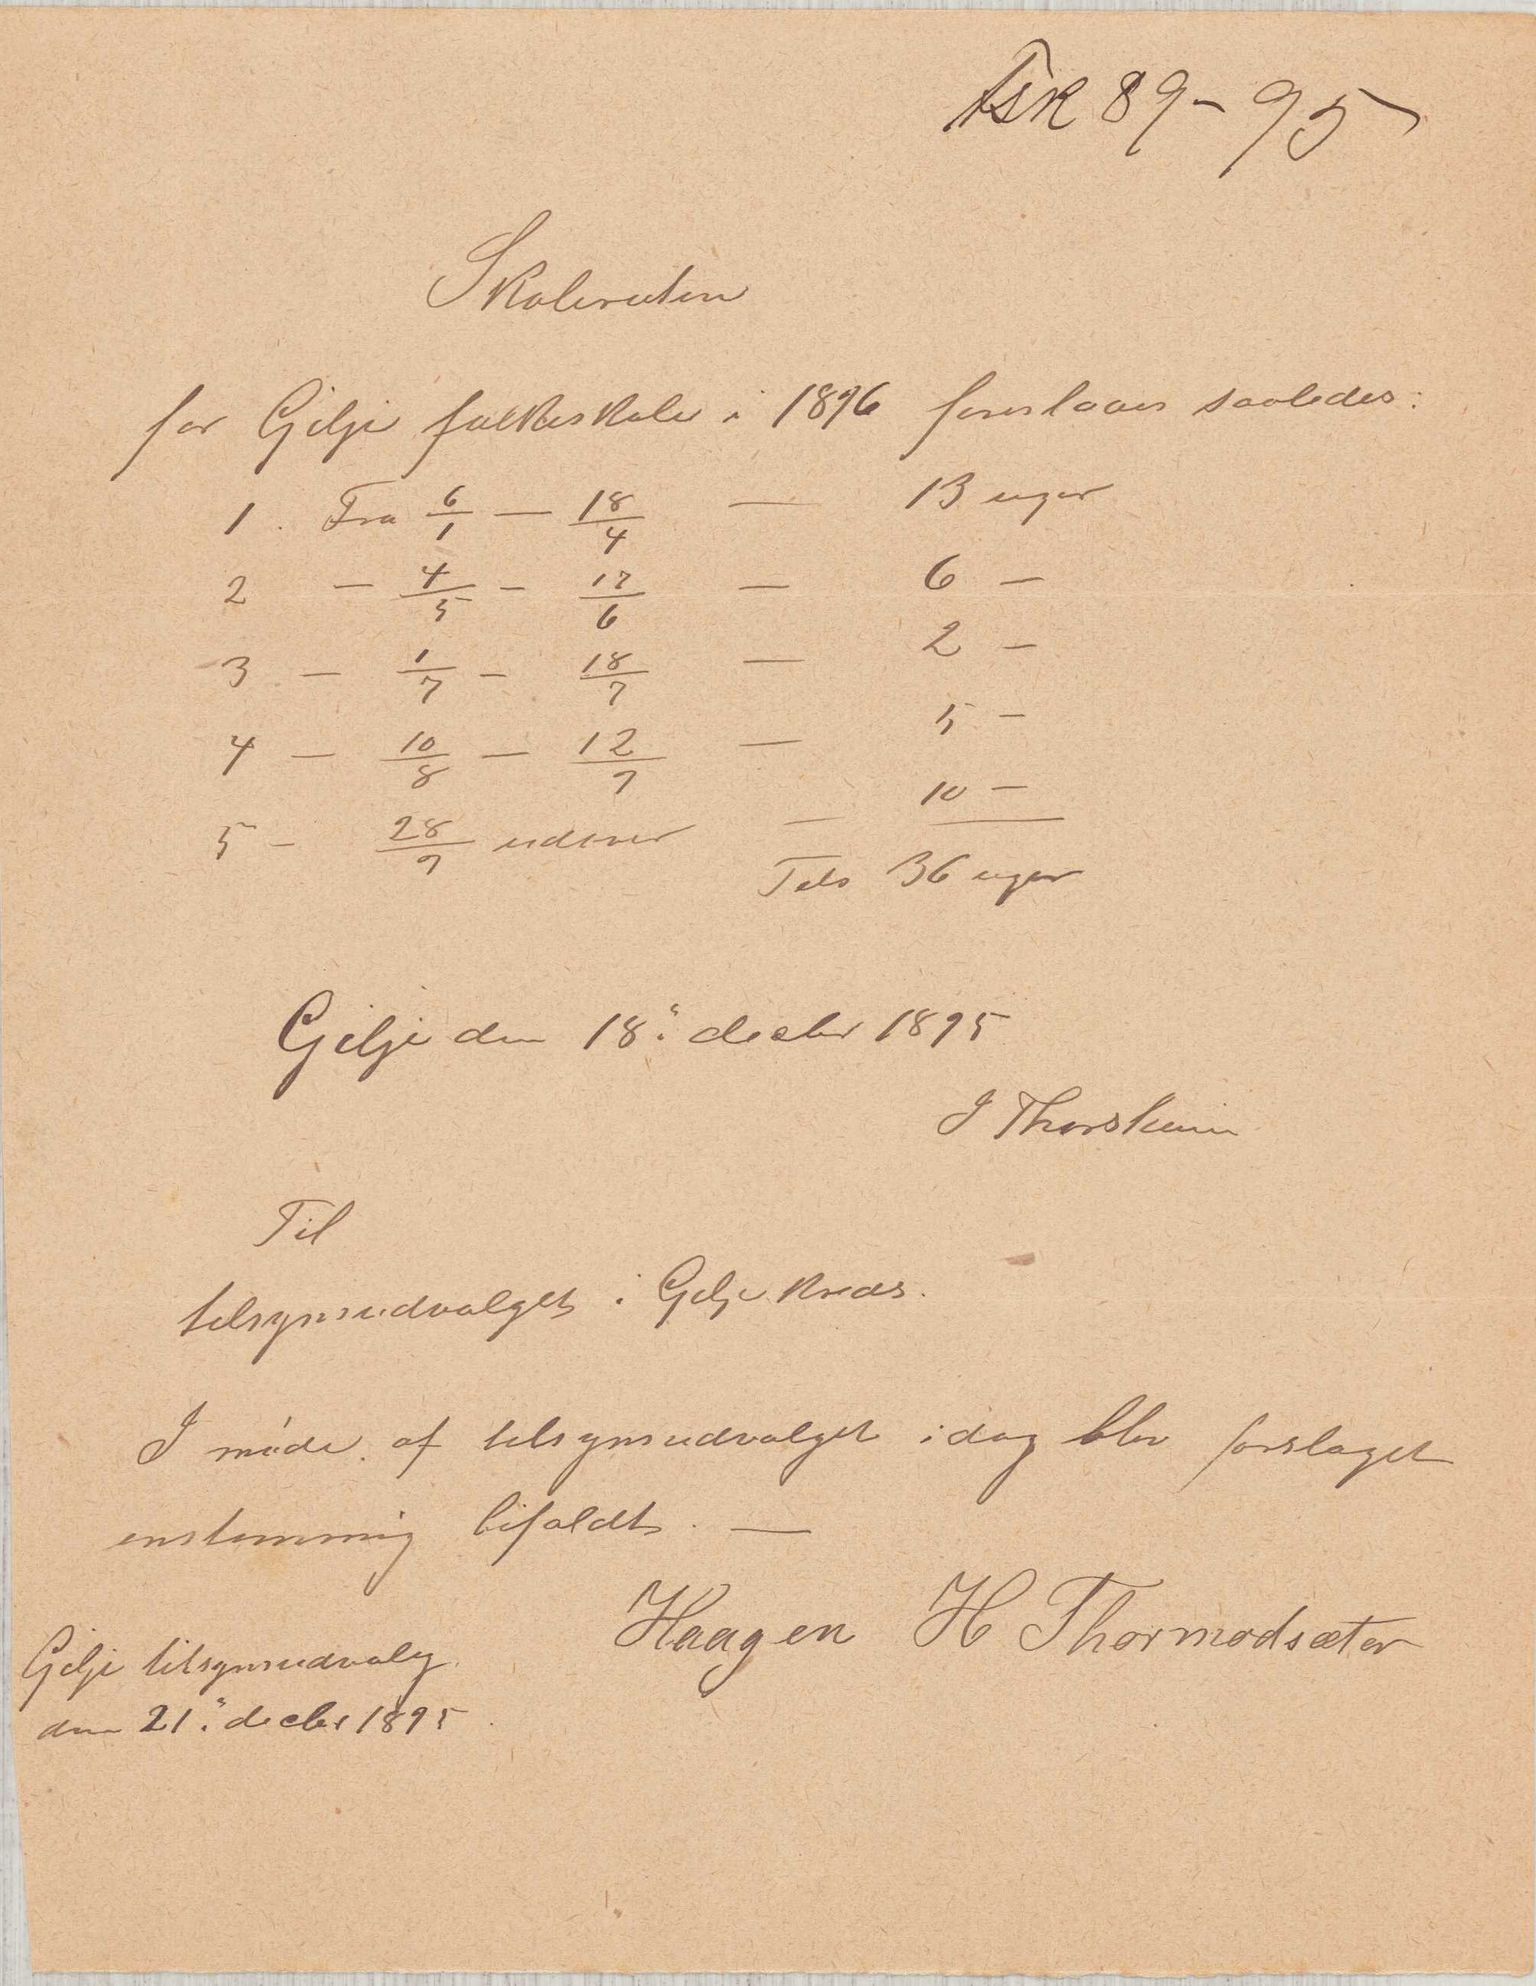 TsK 89 - 95
Skoleruten
for Gilje folkeskole i 1896 foreslaaes saaledes:
1. Fra 6/1 — 18/4 — 13 uger
2 — 4/5 — 17/6 — 6 —
3 — 1/7 — 18/7 — 2 —
4 — 10/8 — 12/9 — 5 —
5 — 28/9 udover — 10 —
Tils 36 uger
Gilje den 18: decbr 1895
J Thorsheim
Til
tilsynsudvalget i Gilje kreds.
I møde af tilsynsudvalget idag blev forslaget
enstemmig bifaldt. —
Haagen H Thormodsæter
Gilje tilsynsudvalg
den 21: decbr 1895.